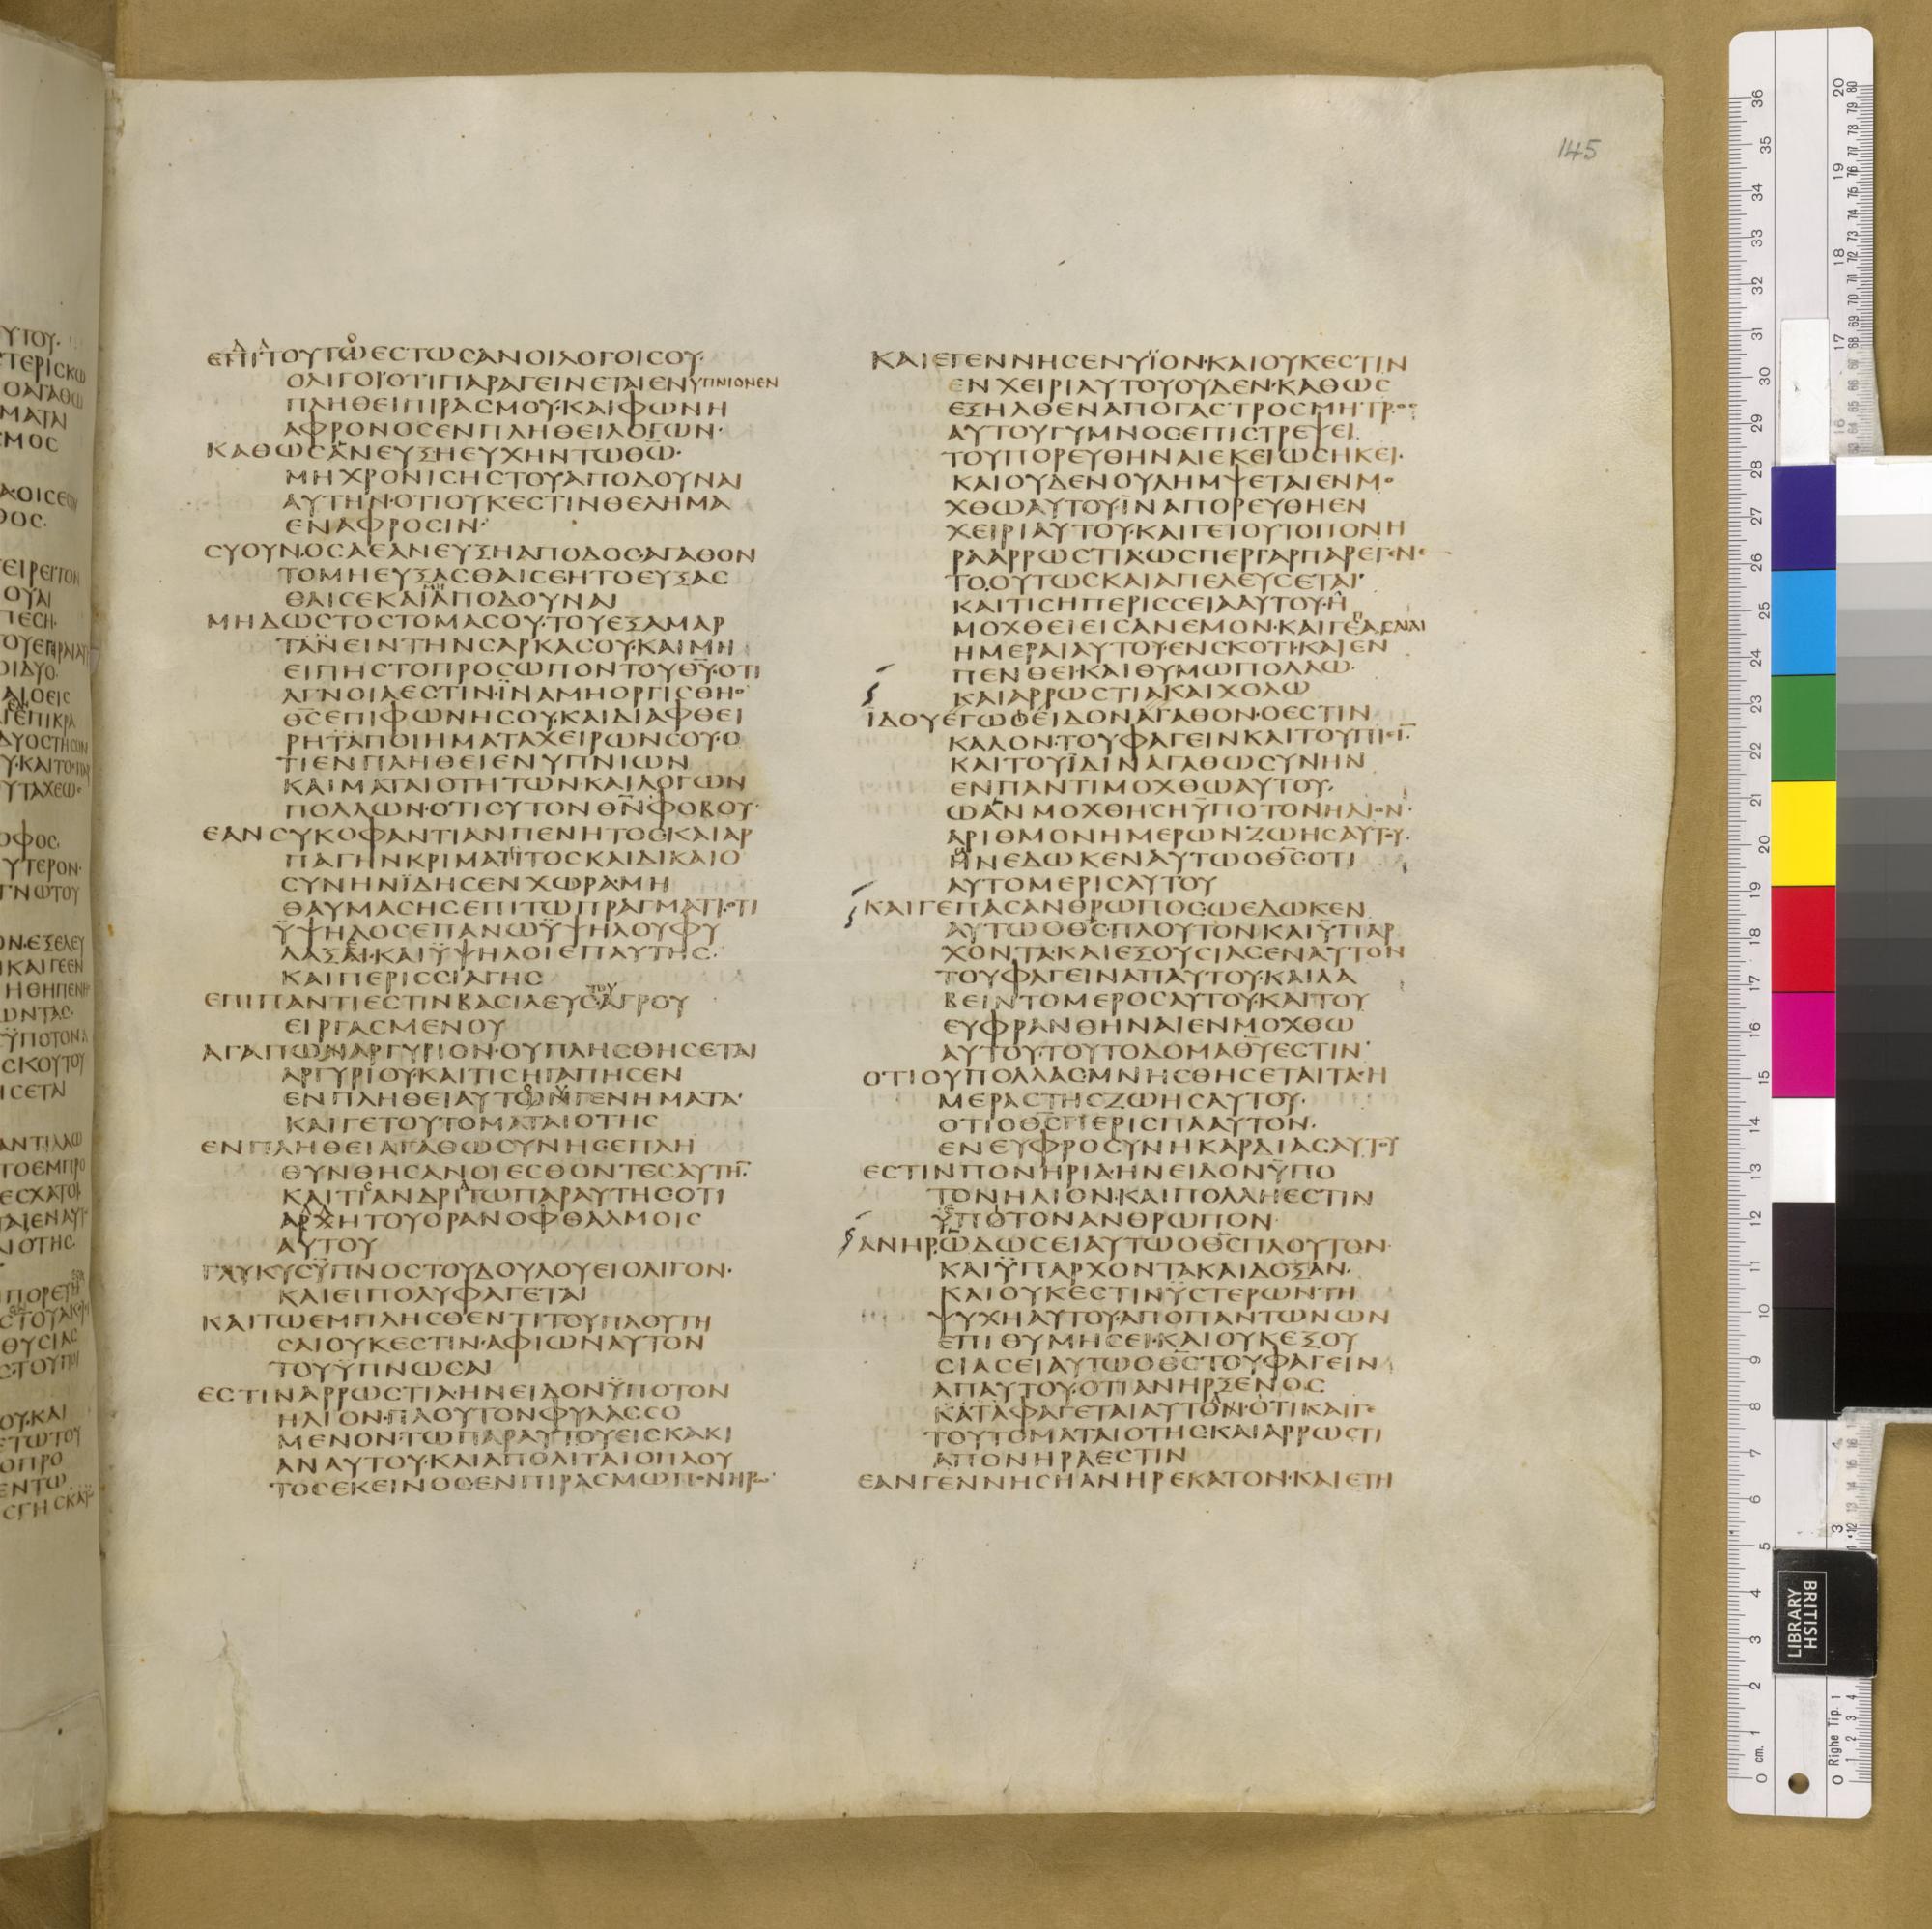 145
ΕΠΙΤΟΥΤΩΕΣΤΩΣΑΝΟΙΛΟΓΟΙΣΟΥ·
ΟΛΙΓΟΙ·ΟΤΙΠΑΡΑΓΕΙΝΕΤΑΙΕΝΥΠΝΙΟΝΕΝ
ΠΛΗΘΕΙΠΙΡΑΣΜΟΥ·ΚΑΙΦΩΝΗ
ΑΦΡΟΝΟΣΕΝΠΛΗΘΕΙΛΟΓΩΝ·
ΚΑΘΩΣΑΝΕΥΞΗΕΥΧΗΝΤΩΘΩ·
ΜΗΧΡΟΝΙΣΗΣΤΟΥΑΠΟΔΟΥΝΑΙ
ΑΥΤΗΝ·ΟΤΙΟΥΚΕΣΤΙΝΘΕΛΗΜΑ
ΕΝΑΦΡΟΣΙΝ·
ΣΥΟΥΝ·ΟΣΑΕΑΝΕΥΞΗΑΠΟΔΟΣ·ΑΓΑΘΟΝ
ΤΟΜΗΕΥΞΑΣΘΑΙΣΕΗΤΟΕΥΞΑΣ
ΘΑΙΣΕΚΑΙΜΗΑΠΟΔΟΥΝΑΙ
ΜΗΔΩΣΤΟΣΤΟΜΑΣΟΥ·ΤΟΥΕΞΑΜΑΡ
ΤΑΝΕΙΝΤΗΝΣΑΡΚΑΣΟΥ·ΚΑΙΜΗ
ΕΙΠΗΣΤΟΠΡΟΣΩΠΟΝΤΟΥΘΥ·ΟΤΙ
ΑΓΝΟΙΑΕΣΤΙΝ·ΪΝΑΜΗΟΡΓΙΣΘΗ·Ο
ΘΣΕΠΙΦΩΝΗΣΟΥ·ΚΑΙΔΙΑΦΘΕΙ
ΡΗΤΑΠΟΙΗΜΑΤΑΧΕΙΡΩΝΣΟΥ·Ο
ΤΙΕΝΠΛΗΘΕΙΕΝΥΠΝΙΩΝ
ΚΑΙΜΑΤΑΙΟΤΗΤΩΝ·ΚΑΙΛΟΓΩΝ
ΠΟΛΛΩΝ·ΟΤΙΣΥΤΟΝΘΝΦΟΒΟΥ·
ΕΑΝΣΥΚΟΦΑΝΤΙΑΝΠΕΝΗΤΟΣ·ΚΑΙΑΡ
ΠΑΓΗΝΚΡΙΜΑΤΙΤΟΣΚΑΙΔΙΚΑΙΟ
ΣΥΝΗΝΪΔΗΣΕΝΧΩΡΑ·ΜΗ
ΘΑΥΜΑΣΗΣΕΠΙΤΩΠΡΑΓΜΑΤΙ·ΟΤΙ
ΫΨΗΛΟΣΕΠΑΝΩΫΨΗΛΟΥΦΥ
ΛΑΞΑΙ·ΚΑΙΫΨΗΛΟΙΕΠΑΥΤΗΣ·
ΚΑΙΠΕΡΙΣΣΙΑΓΗΣ
ΕΠΙΠΑΝΤΙΕΣΤΙΝΒΑΣΙΛΕΥΣΤΟΥΑΓΡΟΥ
ΕΙΡΓΑΣΜΕΝΟΥ
ΑΓΑΠΩΝΑΡΓΥΡΙΟΝ·ΟΥΠΛΗΣΘΗΣΕΤΑΙ
ΑΡΓΥΡΙΟΥ·ΚΑΙΤΙΣΗΓΑΠΗΣΕΝ
ΕΝΠΛΗΘΕΙΑΥΤΩΝΓΕΝΗΜΑΤΑ·
ΚΑΙΓΕΤΟΥΤΟΜΑΤΑΙΟΤΗΣ
ΕΝΠΛΗΘΕΙΑΓΑΘΩΣΥΝΗΣΕΠΛΗ
ΘΥΝΘΗΣΑΝΟΙΕΣΘΟΝΤΕΣΑΥΤΗ·
ΚΑΙΤΙΑΝΔΡΙΤΩΠΑΡΑΥΤΗΣΟΤΙ
ΑΡΧΗΤΟΥΟΡΑΝΟΦΘΑΛΜΟΙΣ
ΑΥΤΟΥ
ΓΛΥΚΥΣΫΠΝΟΣΤΟΥΔΟΥΛΟΥΕΙΟΛΙΓΟΝ·
ΚΑΙΕΙΠΟΛΥΦΑΓΕΤΑΙ
ΚΑΙΤΩΕΜΠΛΗΣΘΕΝΤΙΤΟΥΠΛΟΥΤΗ
ΣΑΙΟΥΚΕΣΤΙΝ·ΑΦΙΩΝΑΥΤΟΝ
ΤΟΥΫΠΝΩΣΑΙ
ΕΣΤΙΝΑΡΡΩΣΤΙΑ·ΗΝΕΙΔΟΝΫΠΟΤΟΝ
ΗΛΙΟΝ·ΠΛΟΥΤΟΝΦΥΛΑΣΣΟ
ΜΕΝΟΝ·ΤΩΠΑΡΑΥΤΟΥΕΙΣΚΑΚΙ
ΑΝΑΥΤΟΥ·ΚΑΙΑΠΟΛΙΤΑΙΟΠΛΟΥ
ΤΟΣΕΚΕΙΝΟΣ·ΕΝΠΙΡΑΣΜΩΠΟΝΗΡΩ·
ΚΑΙΕΓΕΝΝΗΣΕΝΥΪΟΝ·ΚΑΙΟΥΚΕΣΤΙΝ
ΕΝΧΕΙΡΙΑΥΤΟΥΟΥΔΕΝ·ΚΑΘΩΣ
ΕΞΗΛΘΕΝΑΠΟΓΑΣΤΡΟΣΜΗΤΡΟΣ
ΑΥΤΟΥΓΥΜΝΟΣΕΠΙΣΤΡΕΨΕΙ
ΤΟΥΠΟΡΕΥΘΗΝΑΙΕΚΕΙΩΣΗΚΕΙ·
ΚΑΙΟΥΔΕΝΟΥΛΗΜΨΕΤΑΙΕΝΜΟ
ΧΘΩΑΥΤΟΥ·ΪΝΑΠΟΡΕΥΘΗΕΝ
ΧΕΙΡΙΑΥΤΟΥ·ΚΑΙΓΕΤΟΥΤΟΠΟΝΗ
ΡΑΑΡΡΩΣΤΙΑ·ΩΣΠΕΡΓΑΡΠΑΡΕΓΕΝΟ
ΤΟ·ΟΥΤΩΣΚΑΙΑΠΕΛΕΥΣΕΤΑΙ·
ΚΑΙΤΙΣΗΠΕΡΙΣΣΕΙΑΑΥΤΟΥ·Η
ΜΟΧΘΕΙΕΙΣΑΝΕΜΟΝ·ΚΑΙΓΕΠΑΣΑΙΑΙ
ΗΜΕΡΑΙΑΥΤΟΥ·ΕΝΣΚΟΤΙ·ΚΑΙΕΝ
ΠΕΝΘΕΙ·ΚΑΙΘΥΜΩΠΟΛΛΩ·
ΚΑΙΑΡΡΩΣΤΙΑΚΑΙΧΟΛΩ
ΪΔΟΥΕΓΩΟΕΙΔΟΝΑΓΑΘΟΝ·ΟΕΣΤΙΝ
ΚΑΛΟΝ·ΤΟΥΦΑΓΕΙΝΚΑΙΤΟΥΠΙΕΙ·
ΚΑΙΤΟΥΪΔΙΝΑΓΑΘΩΣΥΝΗΝ
ΕΝΠΑΝΤΙΜΟΧΘΩΑΥΤΟΥ·
ΩΑΝΜΟΧΘΗΣΗΫΠΟΤΟΝΗΛΙΟΝ·
ΑΡΙΘΜΟΝΗΜΕΡΩΝΖΩΗΣΑΥΤΟΥ·
ΗΝΕΔΩΚΕΝΑΥΤΩΟΘΣ·ΟΤΙ
ΑΥΤΟΜΕΡΙΣΑΥΤΟΥ
ΚΑΙΓΕΠΑΣΑΝΘΡΩΠΟΣ·ΩΕΔΩΚΕΝ
ΑΥΤΩΟΘΣ·ΠΛΟΥΤΟΝ·ΚΑΙΫΠΑΡ
ΧΟΝΤΑ·ΚΑΙΕΞΟΥΣΙΑΣΕΝΑΥΤΟΝ
ΤΟΥΦΑΓΕΙΝΑΠΑΥΤΟΥ·ΚΑΙΛΑ
ΒΕΙΝΤΟΜΕΡΟΣΑΥΤΟΥ·ΚΑΙΤΟΥ
ΕΥΦΡΑΝΘΗΝΑΙΕΝΜΟΧΘΩ
ΑΥΤΟΥ·ΤΟΥΤΟΔΟΜΑΘΥΕΣΤΙΝ·
ΟΤΙΟΥΠΟΛΛΑΣΜΝΗΣΘΗΣΕΤΑΙΤΑΣΗ
ΜΕΡΑΣΤΗΣΖΩΗΣΑΥΤΟΥ·
ΟΤΙΟΘΣΠΕΡΙΣΠΑΑΥΤΟΝ·
ΕΝΕΥΦΡΟΣΥΝΗΚΑΡΔΙΑΣΑΥΤΟΥ
ΕΣΤΙΝΠΟΝΗΡΙΑ·ΗΝΕΙΔΟΝΫΠΟ
ΤΟΝΗΛΙΟΝ·ΚΑΙΠΟΛΛΗΕΣΤΙΝ
ΫΠΟΤΟΝΑΝΘΡΩΠΟΝ·
ΑΝΗΡ·ΩΔΩΣΕΙΑΥΤΩΟΘΣΠΛΟΥΤΟΝ·
ΚΑΙΫΠΑΡΧΟΝΤΑΚΑΙΔΟΞΑΝ·
ΚΑΙΟΥΚΕΣΤΙΝΫΣΤΕΡΩΝΤΗ
ΨΥΧΗΑΥΤΟΥ·ΑΠΟΠΑΝΤΩΝΩΝ
ΕΠΙΘΥΜΗΣΕΙ·ΚΑΙΟΥΚΕΞΟΥ
ΣΙΑΣΕΙΑΥΤΩΟΘΣΤΟΥΦΑΓΕΙΝ
ΑΠΑΥΤΟΥ·ΟΤΙΑΝΗΡΞΕΝΟΣ
ΚΑΤΑΦΑΓΕΤΑΙΑΥΤΟΝ·ΟΤΙΚΑΙΓΕ
ΤΟΥΤΟΜΑΤΑΙΟΤΗΣΚΑΙΑΡΡΩΣΤΙ
ΑΠΟΝΗΡΑΕΣΤΙΝ
ΕΑΝΓΕΝΝΗΣΗΑΝΗΡΕΚΑΤΟΝ·ΚΑΙΕΤΗ
BRITISH
LIBRARY